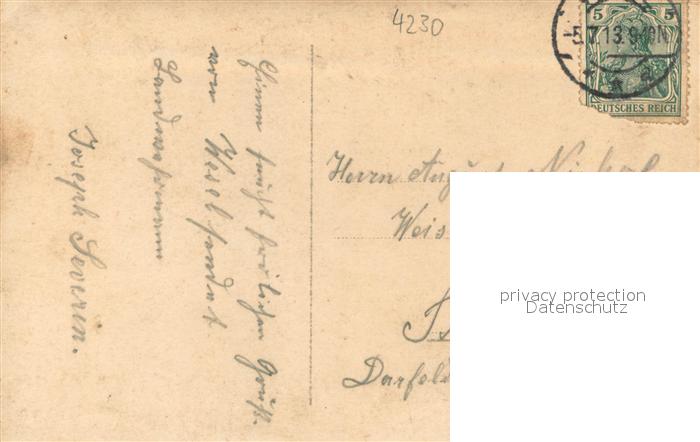 4230
5
5
-5.7.13.9-10N
DEUTSCHES REICH
Einen herzlichen Gruß
von Wesel sendet
Landwehrmann
Joseph Severin.
Herrn August
Weis
Darfeld
privacy protection
Datenschutz